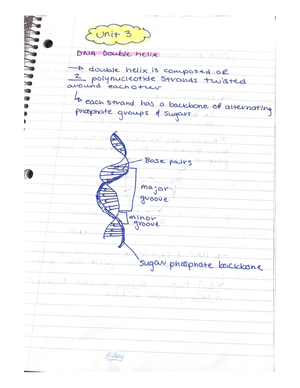 Unit 3
DNA Double helix
→ double helix is composed of
2 polynucleotide strands twisted
around each other
↳ each strand has a backbone of alternating
phosphate groups & sugars.
Base pairs
major
groove
minor
groove
sugar phosphate backbone